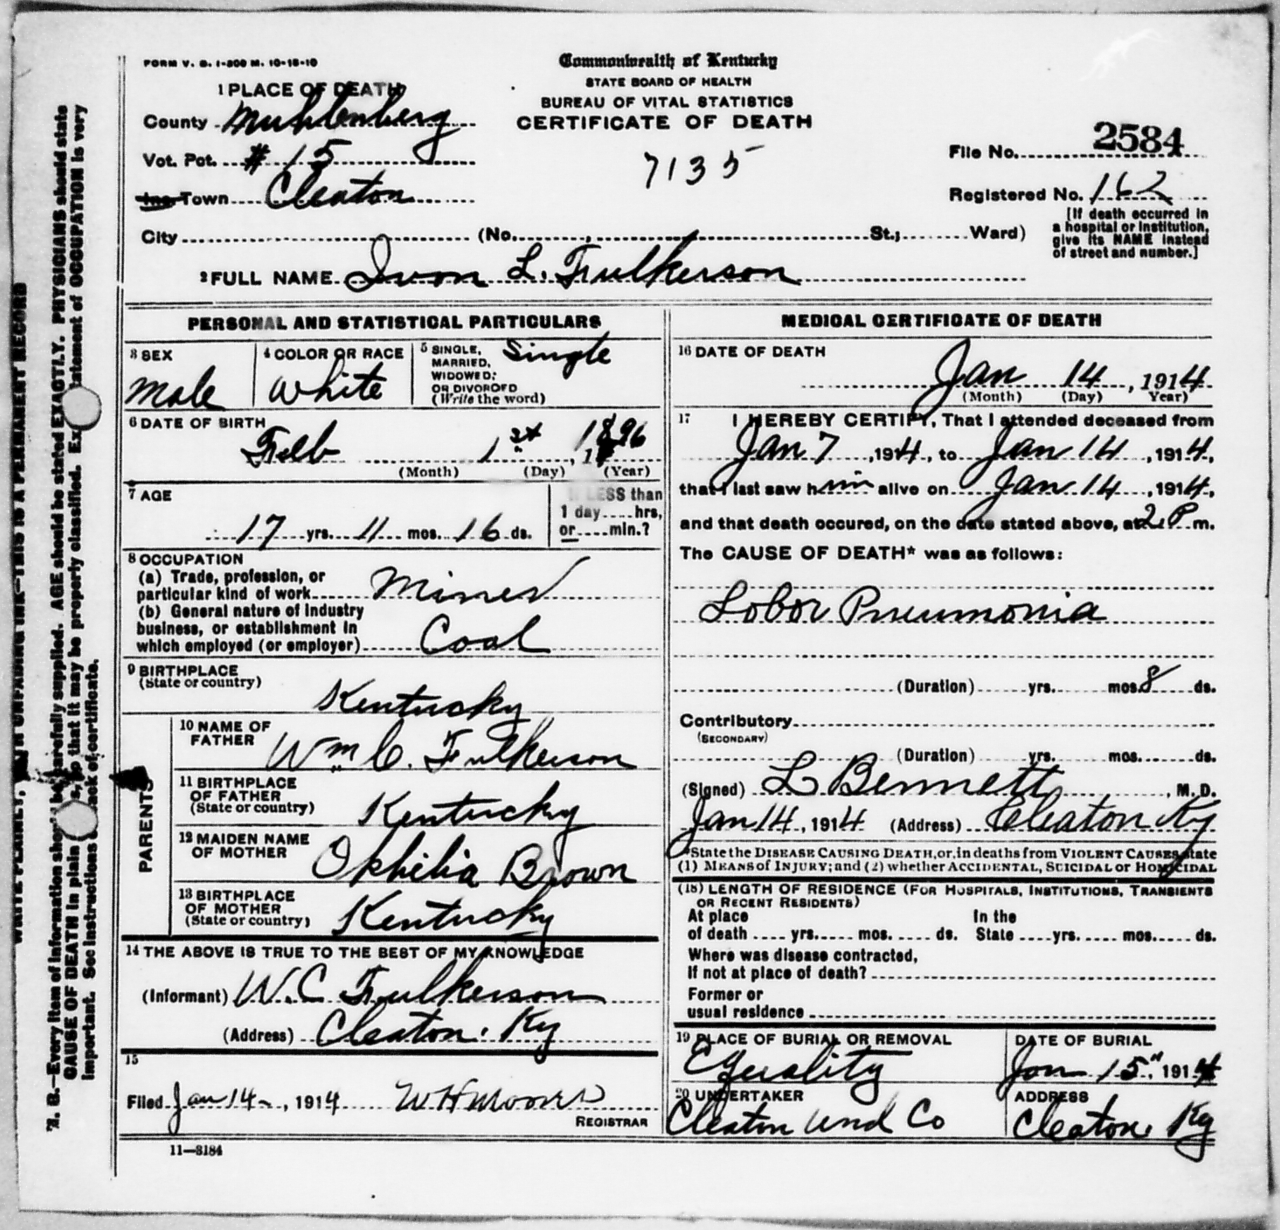 FORM V. S. 1-200 M. 10-18-10
Commonwealth of Kentucky
STATE BOARD OF HEALTH
BUREAU OF VITAL STATISTICS
CERTIFICATE OF DEATH
7135
1 PLACE OF DEATH
County Muhlenberg
Vot. Pct. # 15
Inc. Town Cleaton
City (No. , St.; Ward)
File No. 2584
Registered No. 162
[If death occurred in
a hospital or institution,
give its NAME instead
of street and number.]
2 FULL NAME Ivon L. Fulkerson
PERSONAL AND STATISTICAL PARTICULARS
3 SEX
Male
4 COLOR OR RACE
White
5 SINGLE,
MARRIED,
WIDOWED;
OR DIVORCED
(Write the word)
Single
6 DATE OF BIRTH
Feb 1st, 1896
(Month) (Day) (Year)
7 AGE
17 yrs. 11 mos. 16 ds.
If LESS than
1 day....hrs,
or....min.?
8 OCCUPATION
(a) Trade, profession, or
particular kind of work Miner
(b) General nature of industry
business, or establishment in
which employed (or employer) Coal
9 BIRTHPLACE
(State or country)
Kentucky
PARENTS
10 NAME OF
FATHER
Wm C. Fulkerson
11 BIRTHPLACE
OF FATHER
(State or country)
Kentucky
12 MAIDEN NAME
OF MOTHER
Ophelia Brown
13 BIRTHPLACE
OF MOTHER
(State or country)
Kentucky
14 THE ABOVE IS TRUE TO THE BEST OF MY KNOWLEDGE
(Informant) W.C Fulkerson
(Address) Cleaton. Ky
15
Filed Jan 14, 1914 W H Moore
REGISTRAR
11—3184
MEDICAL CERTIFICATE OF DEATH
16 DATE OF DEATH
Jan 14, 1914
(Month) (Day) Year)
17 I HEREBY CERTIFY, That I attended deceased from
Jan 7, 1914, to Jan 14, 1914,
that I last saw him alive on Jan 14, 1914,
and that death occured, on the date stated above, at 2 P m.
The CAUSE OF DEATH* was as follows:
Lobor Pneumonia
(Duration) yrs. mos. 8 ds.
Contributory
(SECONDARY)
(Duration) yrs. mos. ds.
(Signed) L Bennett, M. D.
Jan 14, 1914 (Address) Cleaton Ky
*State the DISEASE CAUSING DEATH, or, in deaths from VIOLENT CAUSES state
(1) MEANS OF INJURY; and (2) whether ACCIDENTAL, SUICIDAL or HOMICIDAL
(18) LENGTH OF RESIDENCE (FOR HOSPITALS, INSTITUTIONS, TRANSIENTS
OR RECENT RESIDENTS)
At place
of death .... yrs. .... mos. .... ds.
In the
State .... yrs. .... mos. .... ds.
Where was disease contracted,
If not at place of death?
Former or
usual residence
19 PLACE OF BURIAL OR REMOVAL
Equality
DATE OF BURIAL
Jan 15", 1914
20 UNDERTAKER
Cleaton Und Co
ADDRESS
Cleaton, Ky
N. B.—Every item of information should be carefully supplied. AGE should be stated EXACTLY. PHYSICIANS should state
CAUSE OF DEATH in plain terms, so that it may be properly classified. Exact statement of OCCUPATION is very
important. See instructions on back of certificate.
WRITE PLAINLY, WITH UNFADING INK—THIS IS A PERMANENT RECORD